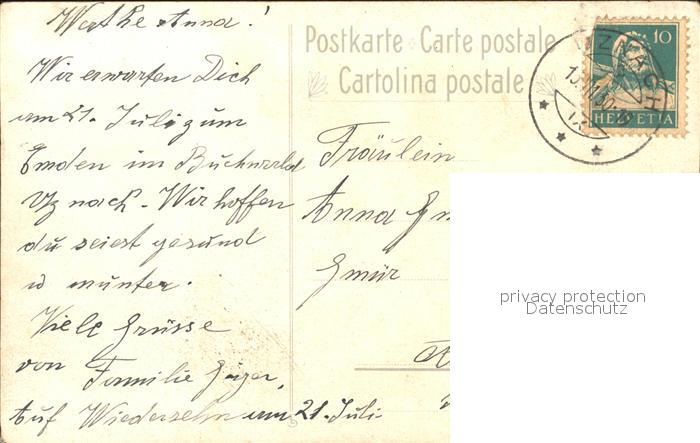 Werthe Anna!
Wir erwarten Dich
am 21. Juli zum
Emden im Buchwald
Uznach. Wir hoffen
du seiest gesund
u munter.
Viele Grüsse
von Familie Geiger,
Auf Wiedersehn am 21. Juli
Postkarte Carte postale
Cartolina postale
Fräulein
Anna
Gmür
10
HELVETIA
UZNACH
privacy protection
Datenschutz